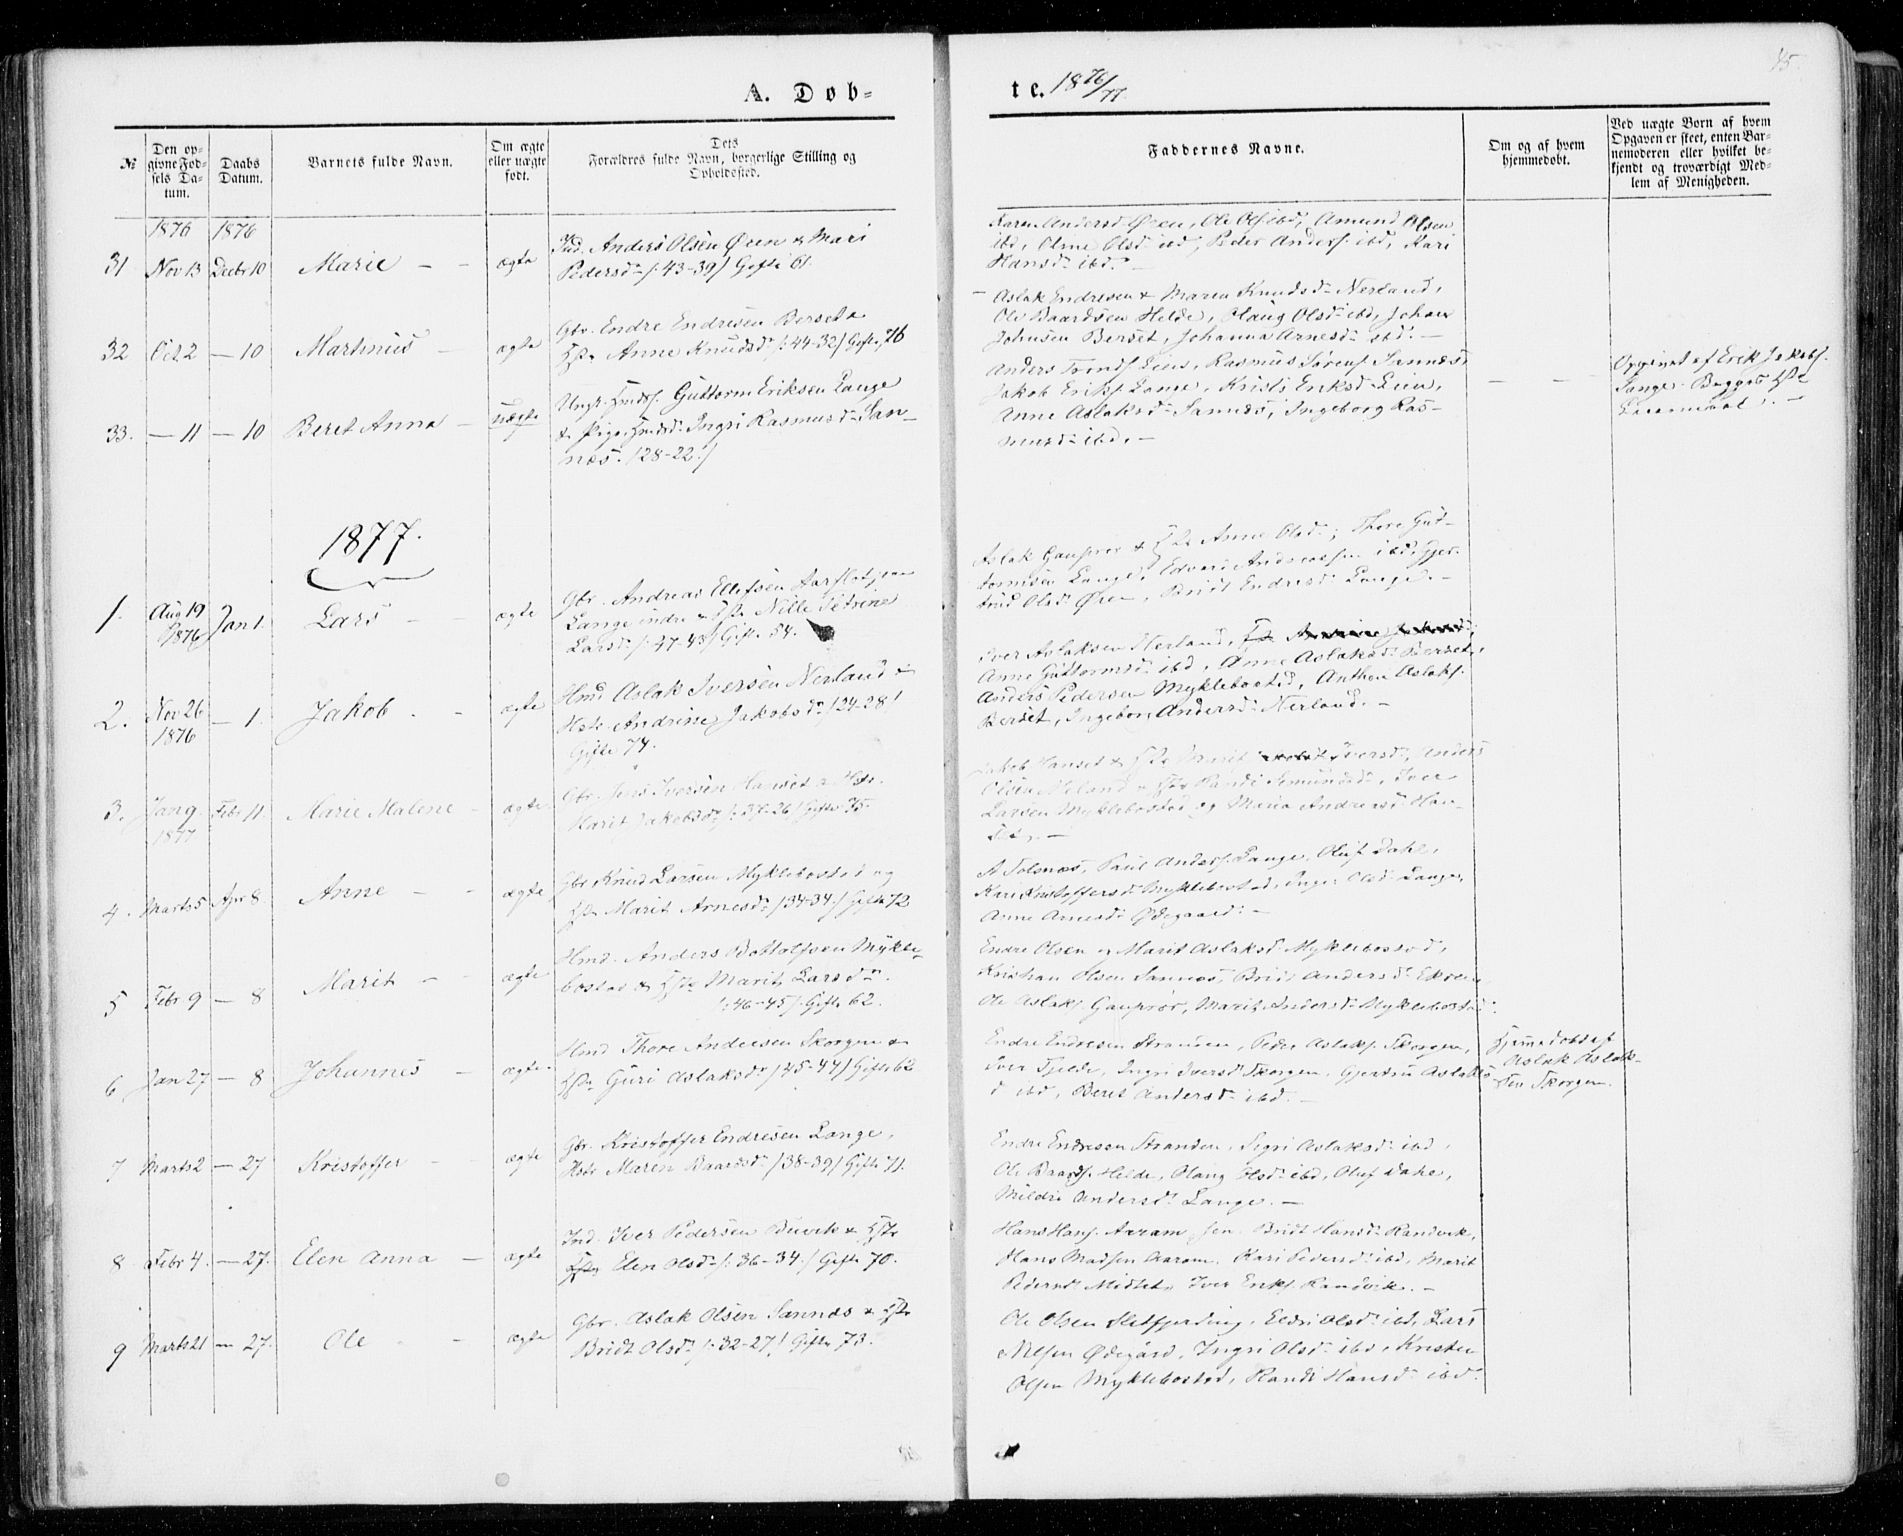 45.
A. Døb-
te. 1876/77.
№
Den op-
givne Fød-
sels Da-
tum.
Daabs
Datum.
Barnets fulde Navn.
Om ægte
eller uægte
født.
Dets
Forældres fulde Navn, borgerlige Stilling og
Opholdssted.
Faddernes Navne.
Om og af hvem
hjemmedøbt.
Ved uægte Børn af hvem
Opgaven er skeet, enten Bar-
nemoderen eller hvilket be-
kjendt og troværdigt Med-
lem af Menigheden.
1876 1876
31 Nov 13 Decbr 10 Marie — — ægte
Anders Olsen Øren & Mari
Pedersd. /: 43-39/ Gifte 61.
Karen Andersd Øren, Ole Ols ibd, Amund Olsen
ibd, Olsd ibd, Peder Anders. ibd, Kari
Hansd ibd. —
32 Oct 2 — 10 Martinus — ægte
Gbr. Endre Endresen Berset &
Hstr Anne Knudsd /: 44-32/ Gifte 76
Aslak Endresen & Maren Knudsd Nerland,
Ole Baardsen Helde, Olaug Olsd ibd, Johan
Johnsen Berset, Johanna Arnesd ibd. —
33. — 11 — 10 Beret Anna — uægte
Ungk. Guttorm Eriksen Lange
& Pige Ingri Rasmusd San-
næs. /28-22:/
Anders Leien, Rasmus Sørens Sannæs,
Jakob Eriks Lange, Kristi Eriksd Leien,
Anne Aslaksd Sannæs, Ingeborg Ras-
musd ibd. —
Opgivet af Erik Jakobs.
Lange. Begges 1ste
Leiermaal. —
1877.
1. Aug 19 1876 Jan 1. Lars — — ægte
Gbr. Andreas Ellefsen
Lange indre & Hstr Nille Petrine
Larsd /: 47-43/ Gifte 54.
Aslak Gauprør & Hstr Anne Olsd, Thore Gut-
tormsen Lange, Edvard Andreassen ibd, Gjer-
trud Olsd Øren, Bridt Endresd Lange. —
2. Nov 26 1876 — 1. Jakob — ægte
Hmd Aslak Iversen Nerland &
Hstr Andrine Jakobsd /24-28/
Gifte 74.
Iver Aslaksen Nerland,
Anne Guttormsd ibd, Anne Aslaksd Berset,
Anders Pedersen Myklebostad, Anthon Aslaks.
Berset, Ingebor Andersd Nerland. —
3. Jan 9 1877 Febr 11. Marie Malene — ægte
Gbr. Jens Iversen Hanset & Hstr.
Marit Jakobsd /: 35-26/ Gifte 75.
Jakob Hanset & Hstr Marit Iversd, Anders
Olsen Meland & Hstr Randi Amundsd, Iver
Larsen Myklebostad og Maria Andersd Han-
set. —
4. Marts 5 Apr 8. Anne — — ægte
Gbr Knud Larsen Myklebostad og
Hstr Marit Arnesd /34-34/ Gifte 72
A Solsnæs, Paul Anders. Lange, Oluf Dahl,
Kari Kristoffersd Myklebostad, Inger Olsd Lange,
Anne Arnesd Ødegaard. —
5 Febr 9 — 8 Marit — — ægte
Hmd. Anders Bottolfsen Mykle-
bostad & Hstr Marit Larsd
/: 46-45/ Gifte 62.
Endre Olsen & Marit Aslaksd Myklebostad,
Kristian Olsen Sannæs, Bridt Andersd Ekren,
Ole Aslaks Gauprør, Marit Andersd Myklebostad.
6 Jan 27 — 8 Johannes — ægte
Hmd Thore Andersen Skorgen &
Hstr Guri Aslaksd /45-44/ Gifte 62
Endre Endresen Stranden, Peder Aslaks. Skorgen,
Iver Fjelde, Ingri Iversd Skorgen, Gjertru Aslaks-
d ibd, Beret Andersd ibd. —
Hjemmedøbt af
Aslak Aslak-
sen Skorgen.
7 Marts 2 — 27 Kristoffer — ægte
Gbr. Kristoffer Endresen Lange,
Hstr Maren Baardsd /38-39/ Gifte 71.
Endre Endresen Stranden, Sigri Aslaksd ibd,
Ole Baards. Helde, Olaug Olsd ibd, Oluf Dahl,
Mildri Andersd Lange. —
8 Febr 4. — 27. Elen Anna — ægte
Ind. Iver Pedersen Buvik & Hstr
Elen Olsd /: 36-34/ Gifte 70.
Hans Hans. Aaram sen. Bridt Hansd Randvik,
Hans Madsen Aaram, Kari Pedersd ibd, Marit
Pedersd Midtet, Iver Eriks. Randvik. —
9 Marts 21 — 27. Ole — — ægte
Gbr. Aslak Olsen Sannæs & Hstr
Bridt Olsd /: 32-27/ Gifte 73.
Ole Olsen Sletfjerding, Eldri Olsd ibd, Lars
Nilsen Ødegård, Ingri Olsd ibd, Kristen
Olsen Myklebostad, Randi Hansd ibd.